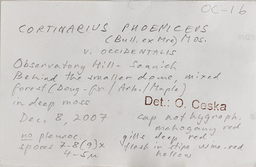 OC-16
CORTINARIUS PHOENICEUS
(Bull. ex Mre) Mos.
v. OCCIDENTALIS
Observatory Hill - Saanich
Behind the smaller dome, mixed
forest (Doug-fir / Arb. / Maple)
in deep moss
Det.: O. Ceska
Dec. 8, 2007
cap not hygroph.
mahogany red
no pleuroc.
gills deep red
spores 7-8(9) x
4-5µ
flesh in stipe wine-red
hollow